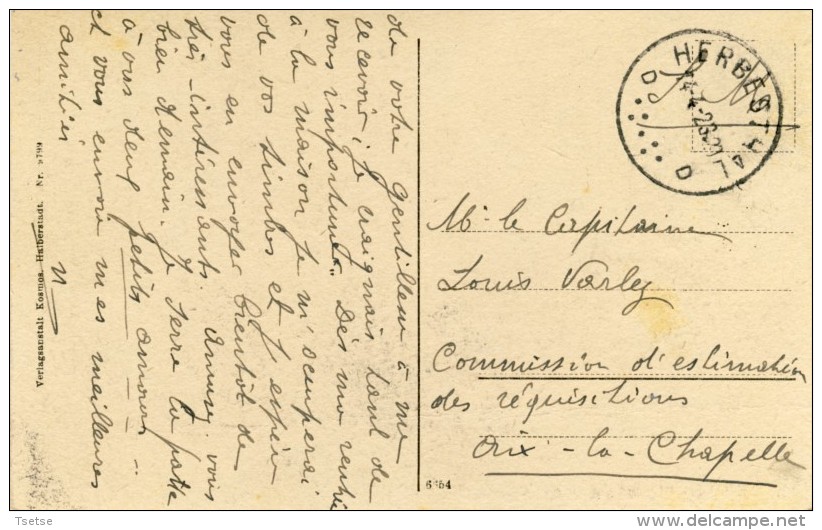 de votre gentillesse à me
recevoir, je craignais tant de
vous importuner. Dès ma rentrée
à la maison je m'occuperai
de vos timbres et j'espère
vous en envoyer bientôt de
très intéressants. Amusez vous
bien demain. Je serre la patte
à vos deux petits amours
et vous envoie mes meilleures
amitiés
Verlagsanstalt Kosmos, Halberstadt. Nr. 9799
HERBESTHAL
D D
S. M.
Mr le Capitaine
Louis Varley
Commission d'estimation
des réquisitions
Aix-la-Chapelle
6354
© Tsetse
delcampe.net